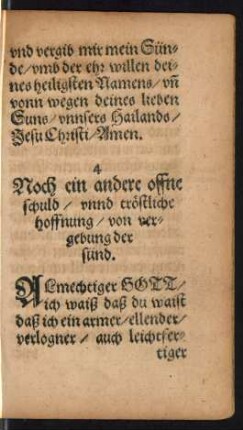 vnd vergib mir mein Sün-
de / vmb der ehr willen dei-
nes heiligsten Namens / vn̄
vonn wegen deines lieben
Suns / vnnsers Hailands /
Jesu Christi / Amen.
4
Noch ein andere offne
schuld / vnnd tröstliche
hoffnung / von ver-
gebung der
sünd.
ALmechtiger GOTT /
ich waiß daß du waist
daß ich ein armer / ellender /
verlogner / auch leichtfer-
tiger